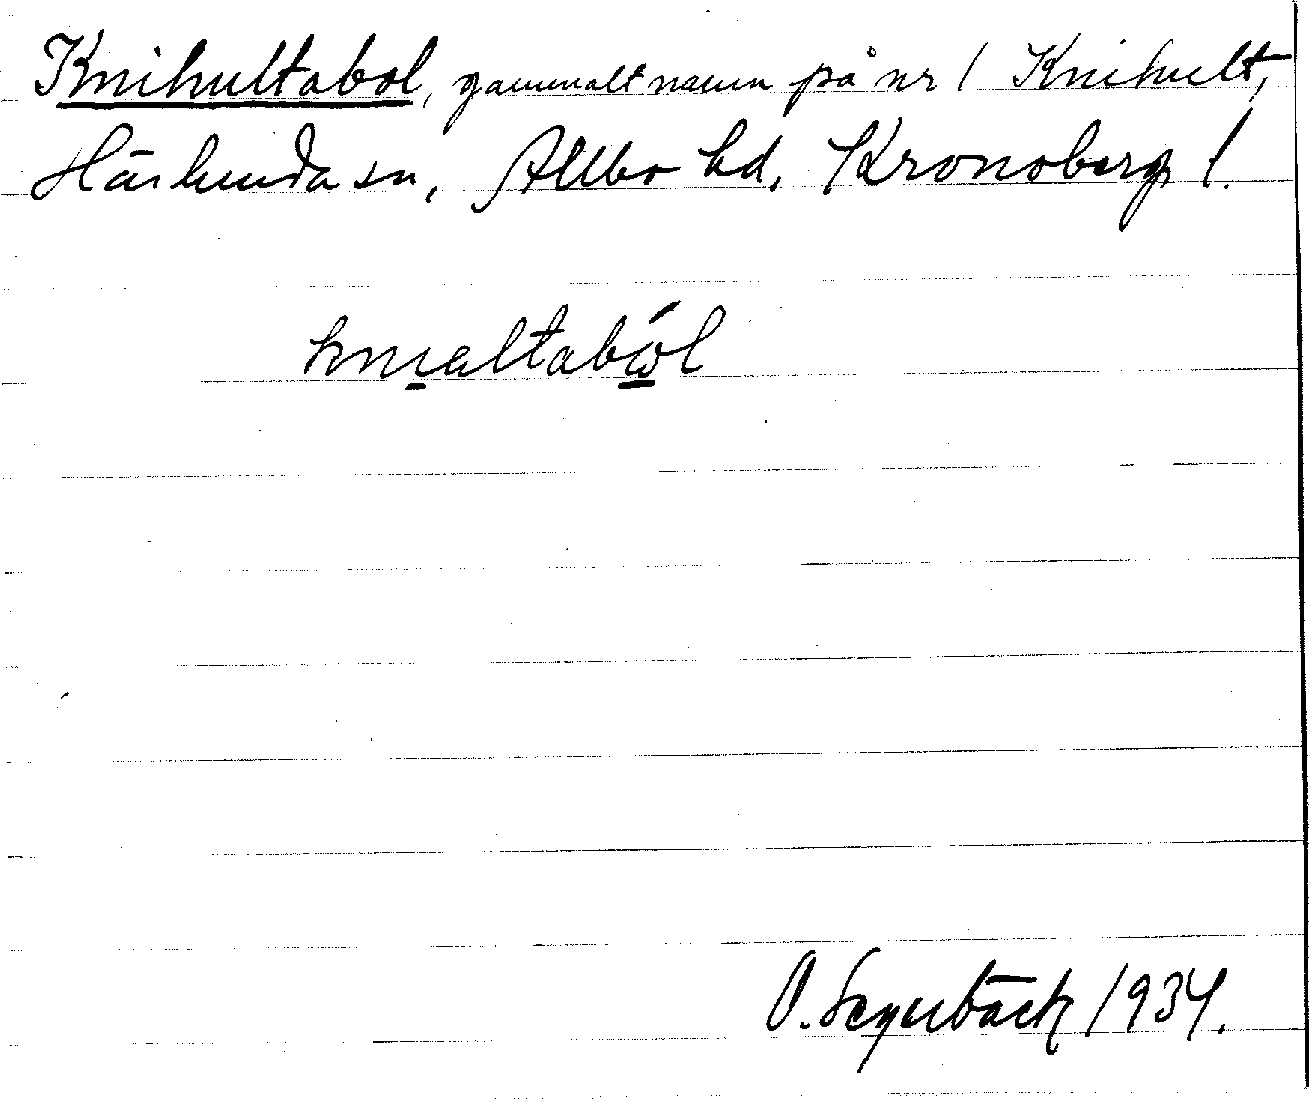 Knihultabol, gammalt namn på nr 1 Knihult,
Härlunda sn, Allbo hd, Kronoberg l.
knialtaból
O. Segerbäck 1934.